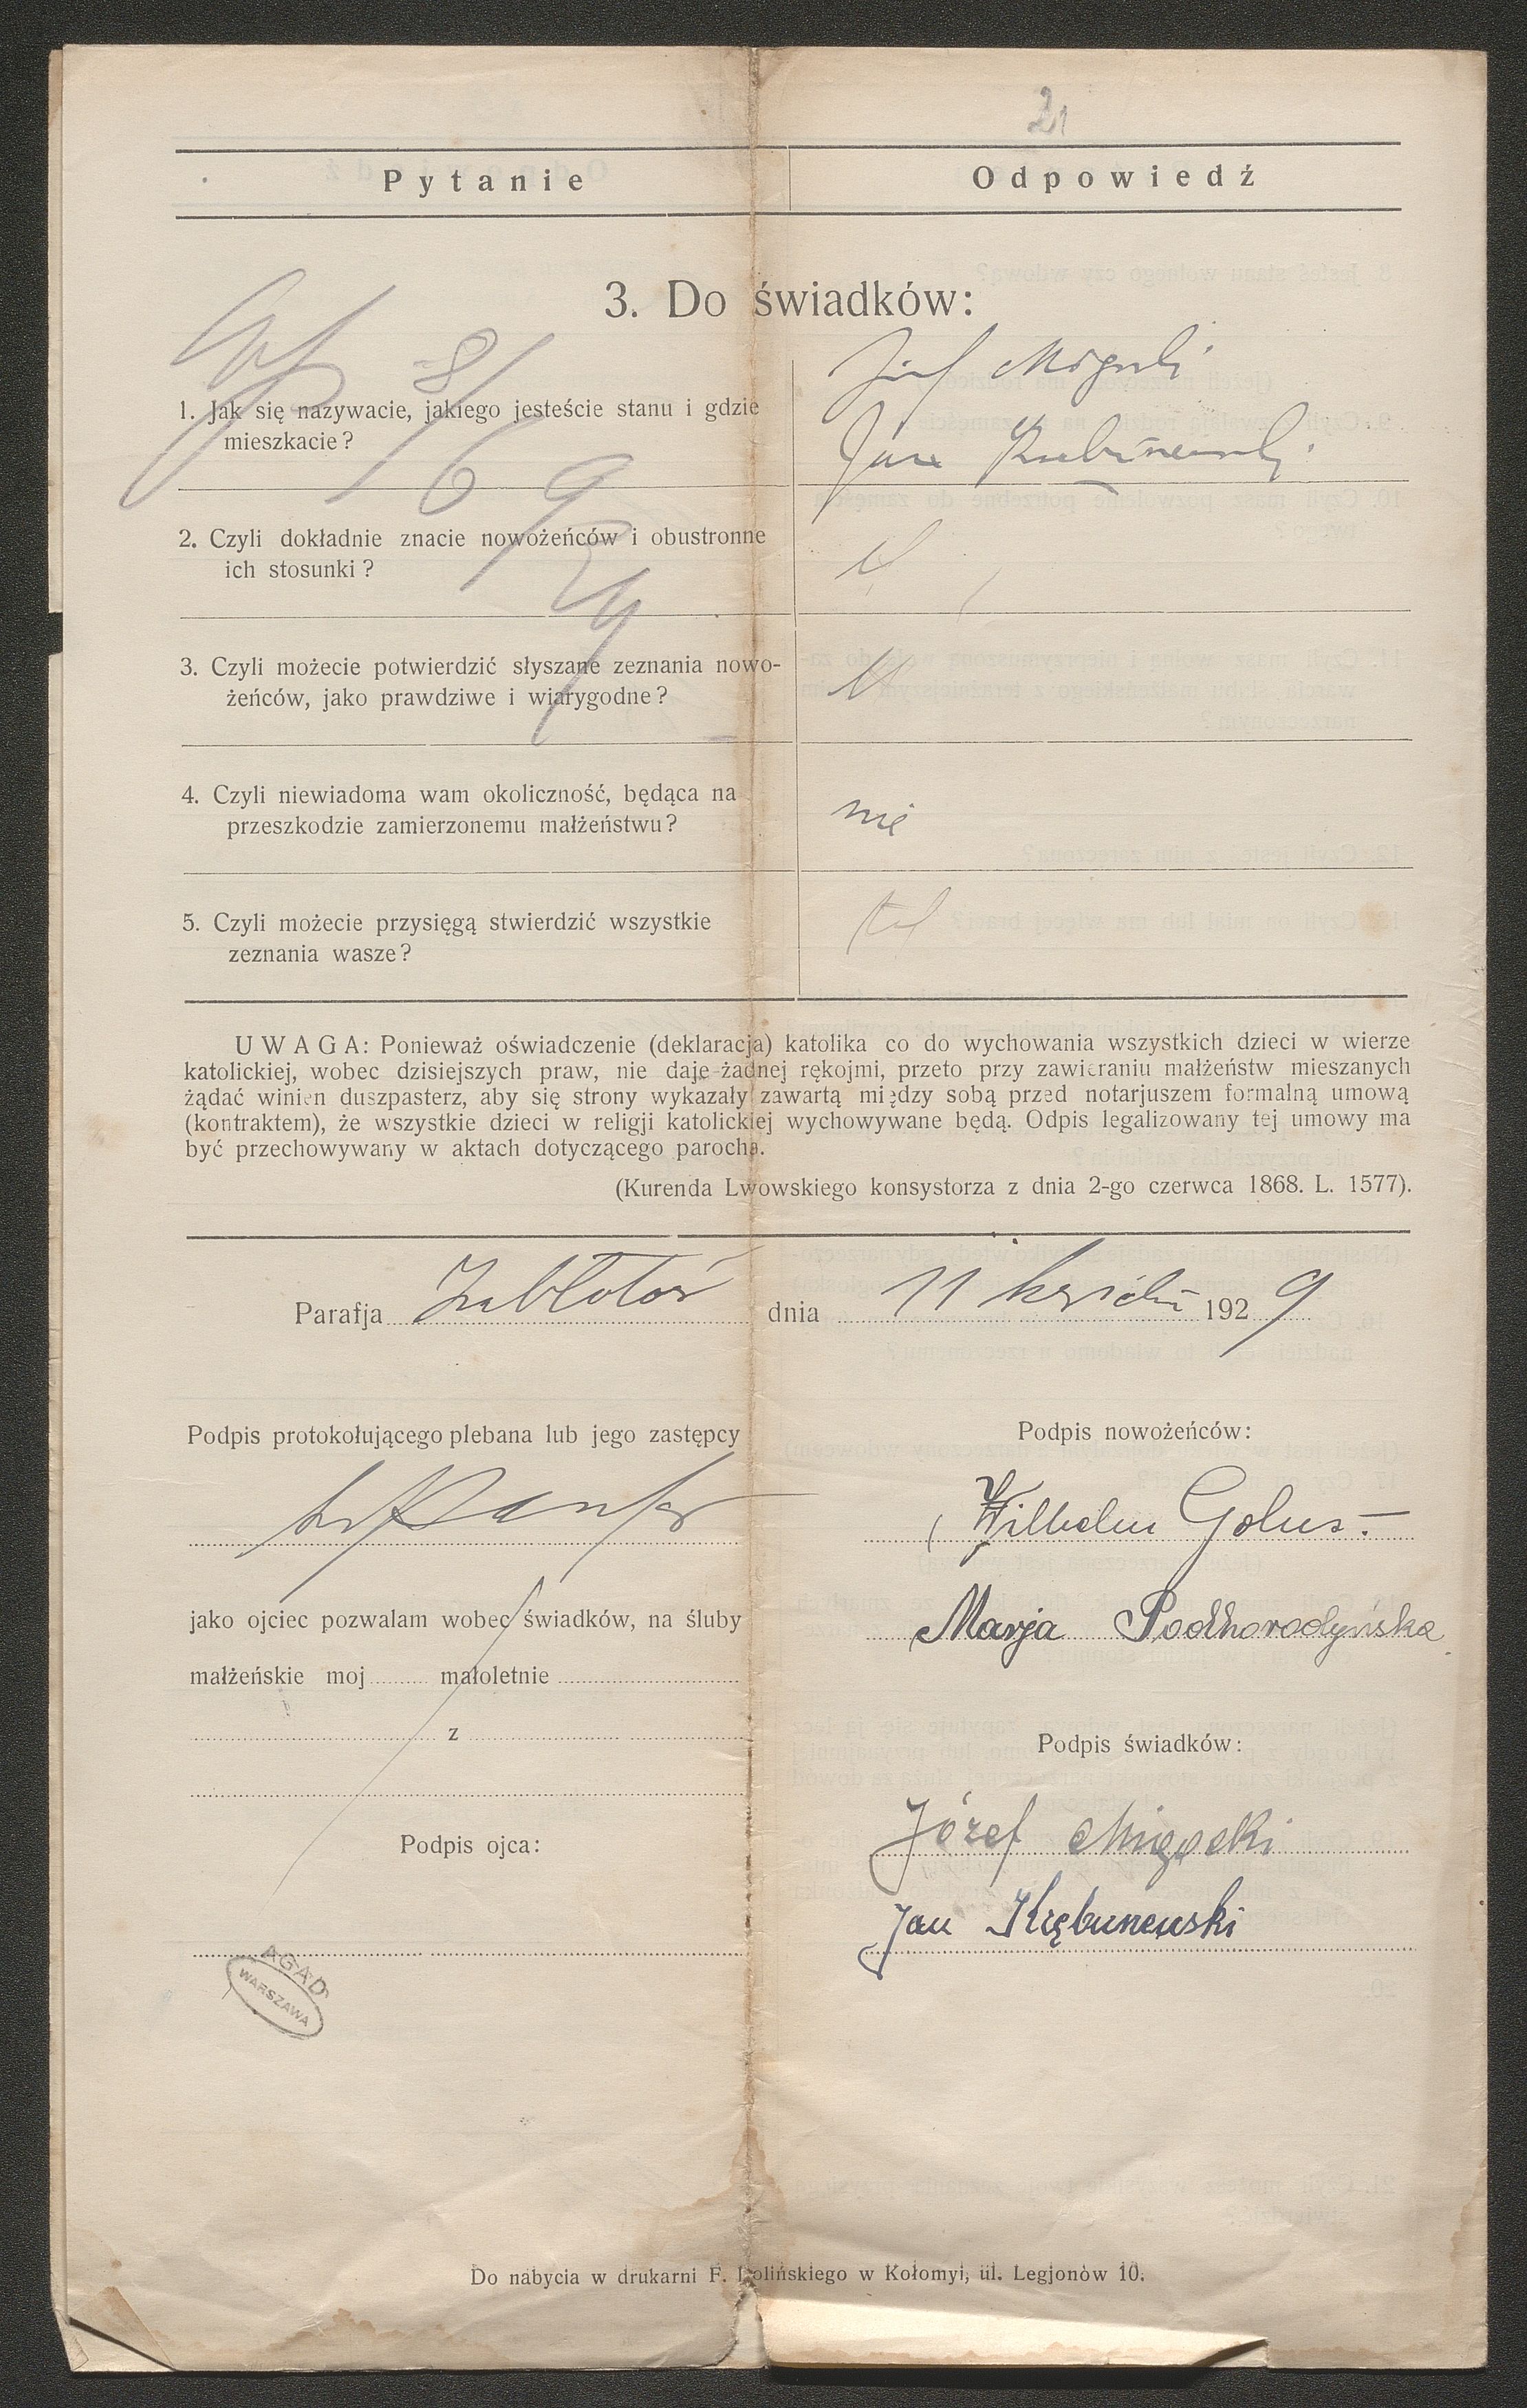 21
Pytanie Odpowiedź
3. Do świadków:
1. Jak się nazywacie, jakiego jesteście stanu i gdzie
mieszkacie?
Józef
Jan
2. Czyli dokładnie znacie nowożeńców i obustronne
ich stosunki?
3. Czyli możecie potwierdzić słyszane zeznania nowo-
żeńców, jako prawdziwe i wiarygodne?
4. Czyli niewiadoma wam okoliczność, będąca na
przeszkodzie zamierzonemu małżeństwu?
nie
5. Czyli możecie przysięgą stwierdzić wszystkie
zeznania wasze?
tak
UWAGA: Ponieważ oświadczenie (deklaracja) katolika co do wychowania wszystkich dzieci w wierze
katolickiej, wobec dzisiejszych praw, nie daje żadnej rękojmi, przeto przy zawieraniu małżeństw mieszanych
żądać winien duszpasterz, aby się strony wykazały zawartą między sobą przed notarjuszem formalną umową
(kontraktem), że wszystkie dzieci w religji katolickiej wychowywane będą. Odpis legalizowany tej umowy ma
być przechowywany w aktach dotyczącego parocha.
(Kurenda Lwowskiego konsystorza z dnia 2-go czerwca 1868. L. 1577).
Parafja Zabłotów dnia 11 192 9
Podpis protokołującego plebana lub jego zastępcy
Podpis nowożeńców:
Wilhelm Golus.
jako ojciec pozwalam wobec świadków, na śluby
Marja Podhorodyńska
małżeńskie moj małoletnie
z
Podpis świadków:
Podpis ojca:
Józef
Jan
AGAD
WARSZAWA
Do nabycia w drukarni F. Dolińskiego w Kołomyi, ul. Legjonów 10.